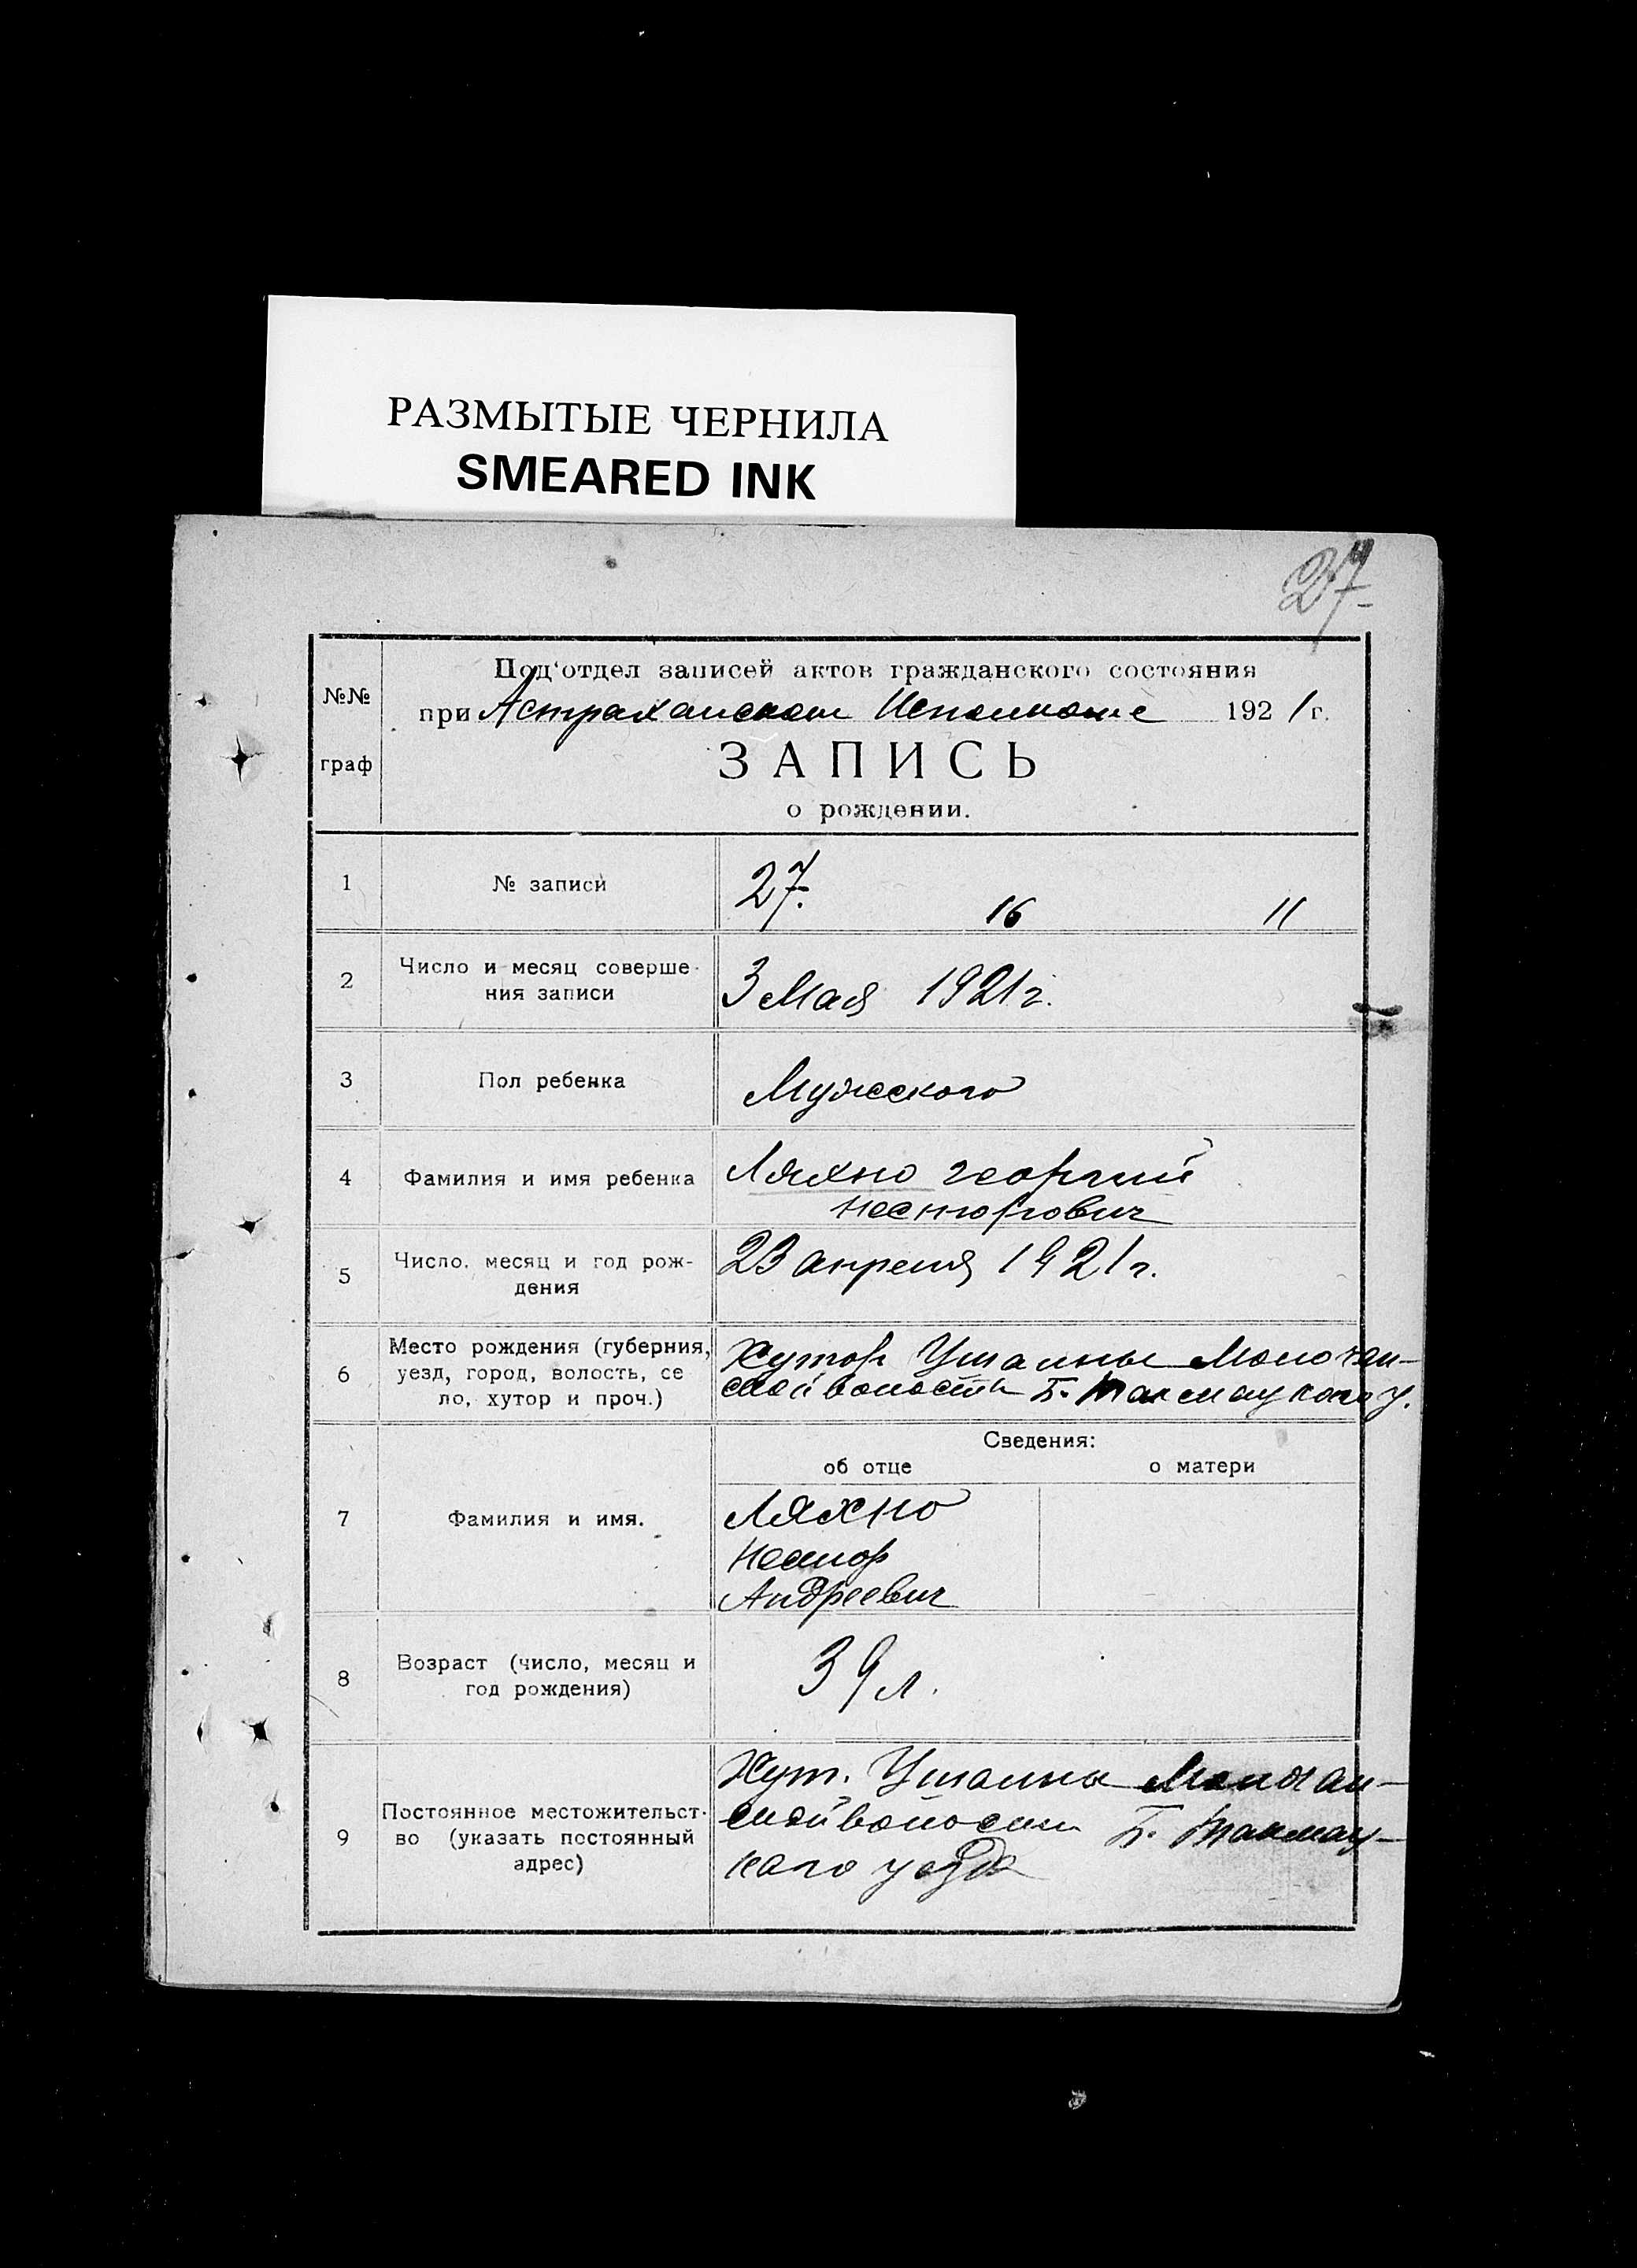 РАЗМЫТЫЕ ЧЕРНИЛА
SMEARED INK
27
Под'отдел записей актов гражданского состояния
№№ при Астраханском Исполкоме 1921 г.
граф ЗАПИСЬ
о рождении.
1 № записи 27.
16 11
2 Число и месяц соверше-
ния записи 3 Мая 1921 г.
3 Пол ребенка Мужского
4 Фамилия и имя ребенка Ляхно Георгий
Несторович
5 Число, месяц и год рож-
дения 23 апреля 1921 г.
6 Место рождения (губерния,
уезд, город, волость, се
ло, хутор и проч.) Хутор Молочан-
ской волости Б. Токмацкого у.
Сведения:
об отце о матери
7 Фамилия и имя. Ляхно
Нестор
Андреевич
8 Возраст (число, месяц и
год рождения) 39 л.
9 Постоянное местожительст-
во (указать постоянный
адрес) Хут. Молочан-
ской волости Б. Токмац-
кого уезда